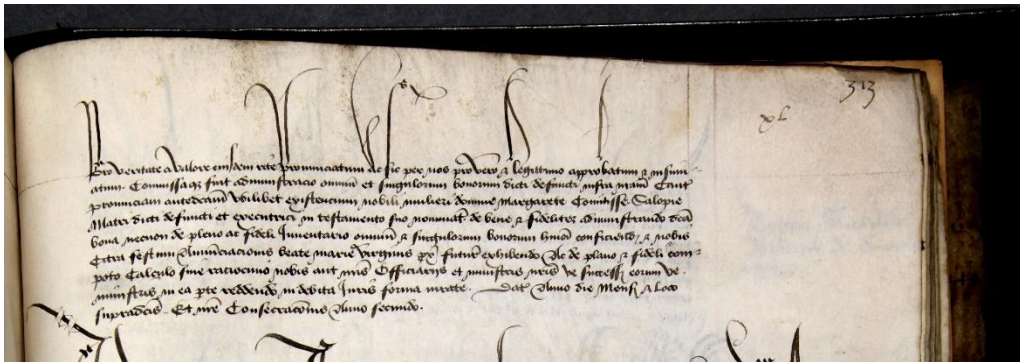 313
xl
pro veritate et valore eiusdem rite pronunciatum ac sic per nos pro vero & legittimo approbatum & insinu-
atum. Comissaqz fuit administracio omniu et singulorum bonorum dicti defuncti infra nram Cant
provinciam antedictam ubilibet existencium nobili mulieri domine Margarete Comitisse Salopie
Matri dicti defuncti et executrici in testamento suo nominat de bene & fideliter administrando dca
bona necnon de pleno ac fideli Inventario omniu & singulorum bonorum hmoi conficiendo & nobis
Citra festum Anunciacionis beate marie virginis px futur exhibendo Ac de plano & fideli com-
poto Calculo sive raciocinio nobis aut nris Officiarijs et ministris nris ve success eorum ve
ministris in ea pte reddendo in debita Iuris forma iurate. Dat Anno die Mens & Loco
supradcis. Et nre Consecraconis Anno secundo.